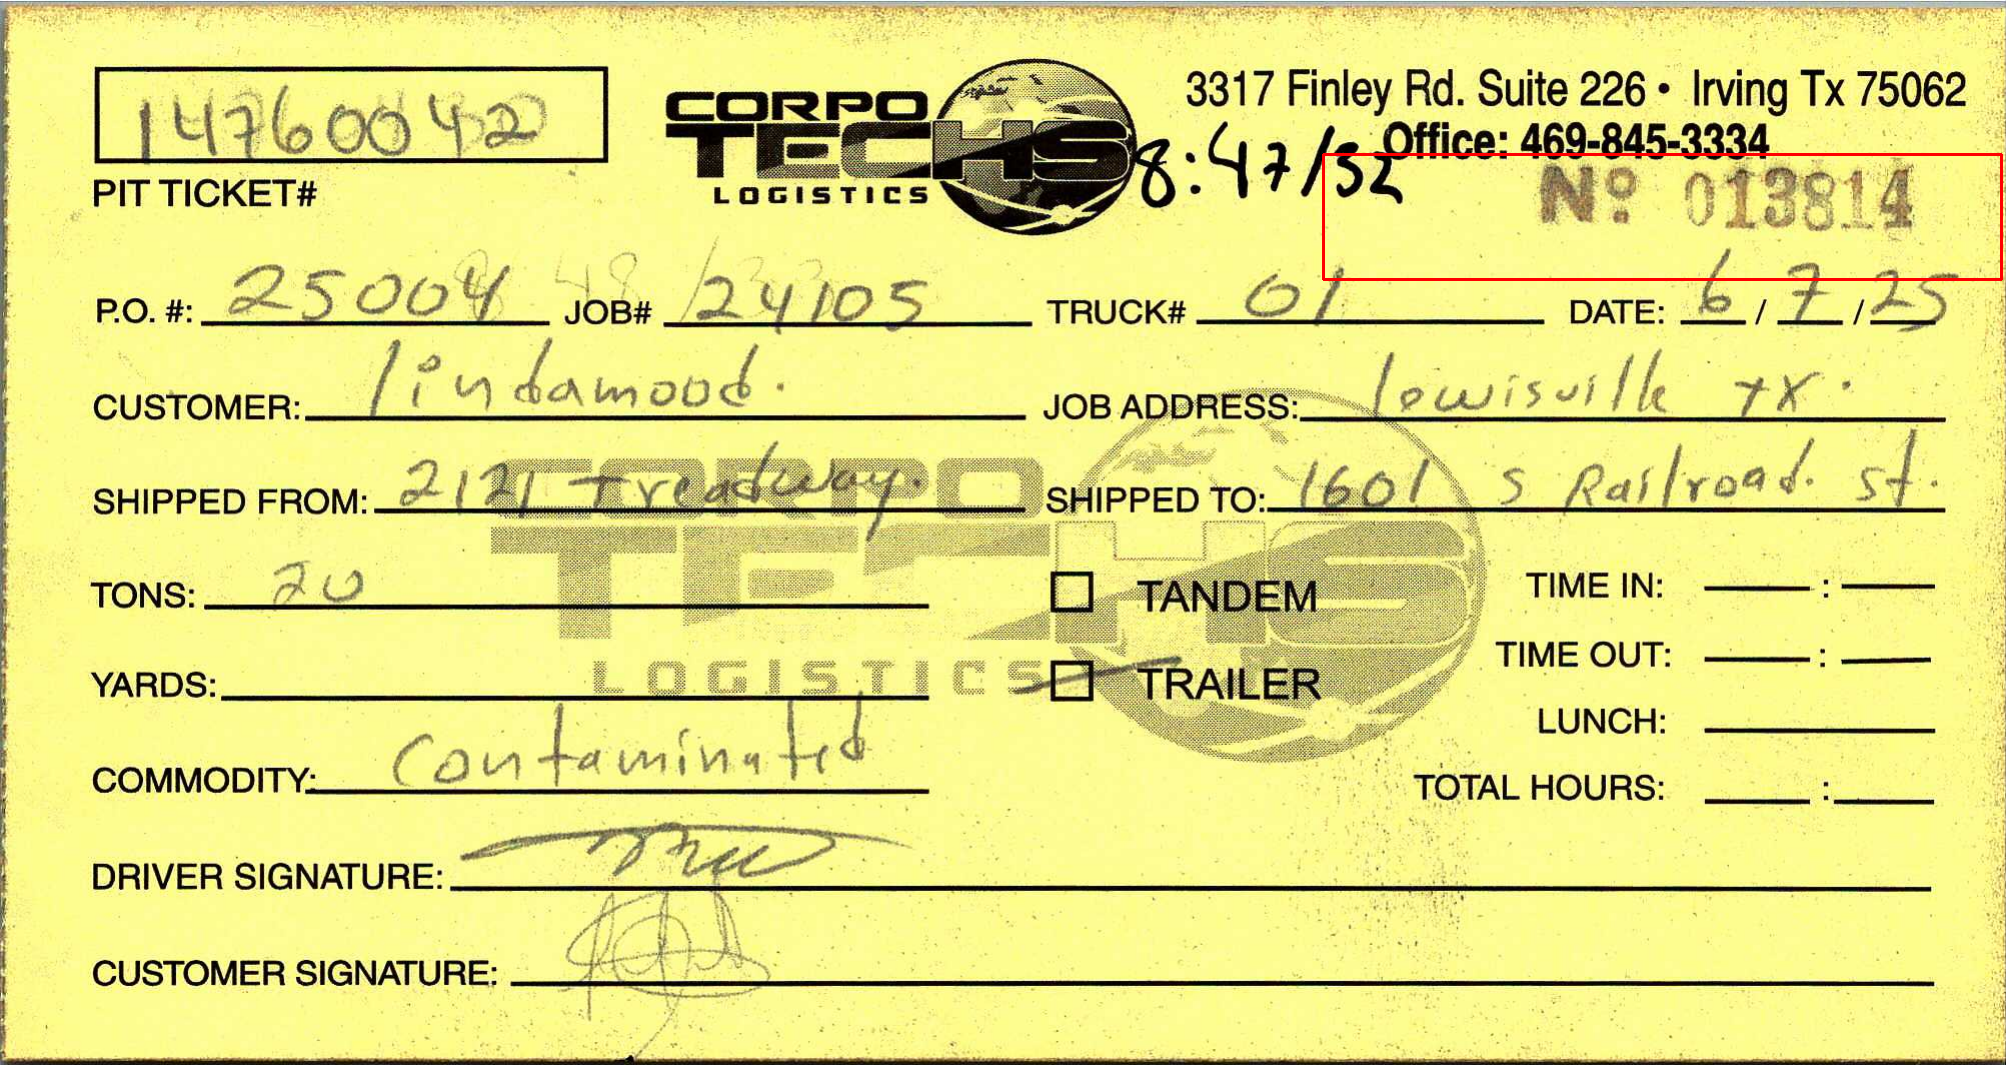 14760042
PIT TICKET#
CORPO
TECHS
LOGISTICS
3317 Finley Rd. Suite 226 • Irving Tx 75062
Office: 469-845-3334
8:47/52
Nº 013814
P.O. #: 25004 JOB# 24105 TRUCK# 01 DATE: 6 / 7 / 25
CUSTOMER: lindamood. JOB ADDRESS: Lewisville TX.
SHIPPED FROM: 2121 Treadway. SHIPPED TO: 1601 S Railroad. St.
CORPO
TECHS
LOGISTICS
TONS: 20
TANDEM
TIME IN: :
YARDS:
TRAILER
TIME OUT: :
LUNCH:
COMMODITY: Contaminated
TOTAL HOURS: :
DRIVER SIGNATURE:
CUSTOMER SIGNATURE: